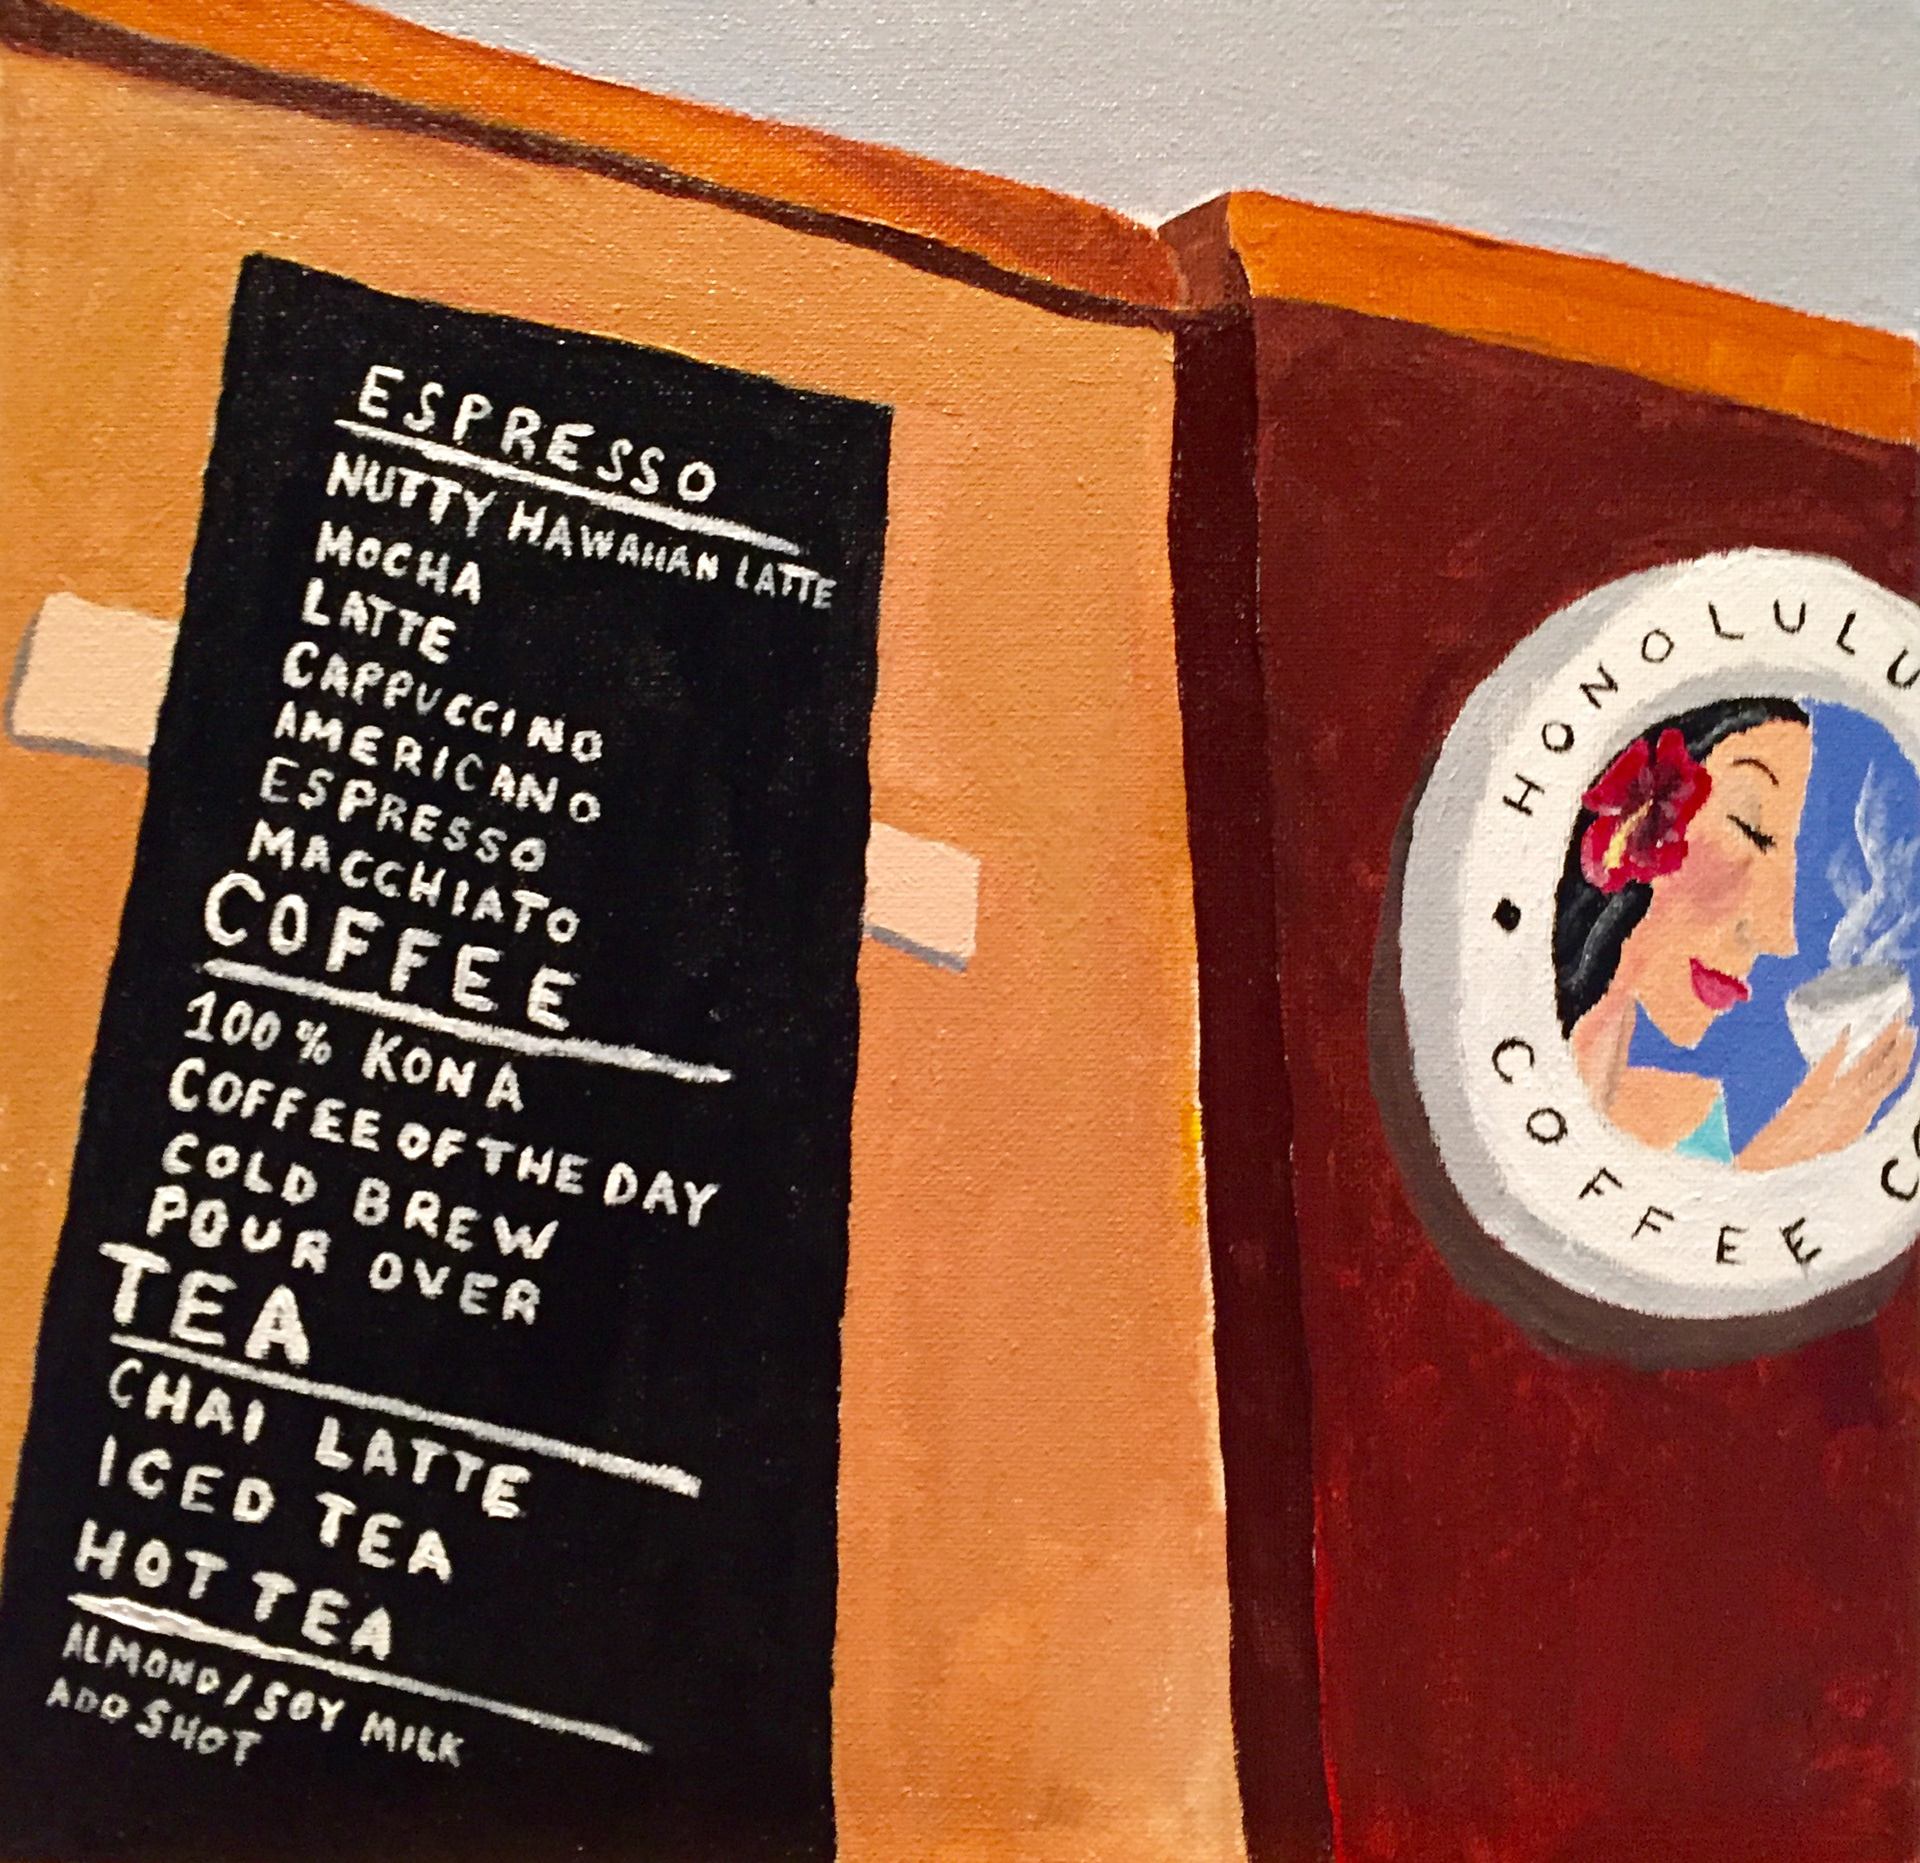 ESPRESSO
NUTTY HAWAIIAN LATTE
MOCHA
LATTE
CAPPUCCINO
AMERICANO
ESPRESSO
MACCHIATO
COFFEE
100% KONA
COFFEE OF THE DAY
COLD BREW
POUR OVER
TEA
CHAI LATTE
ICED TEA
HOT TEA
ALMOND/SOY MILK
ADD SHOT
HONOLULU
COFFEE CO